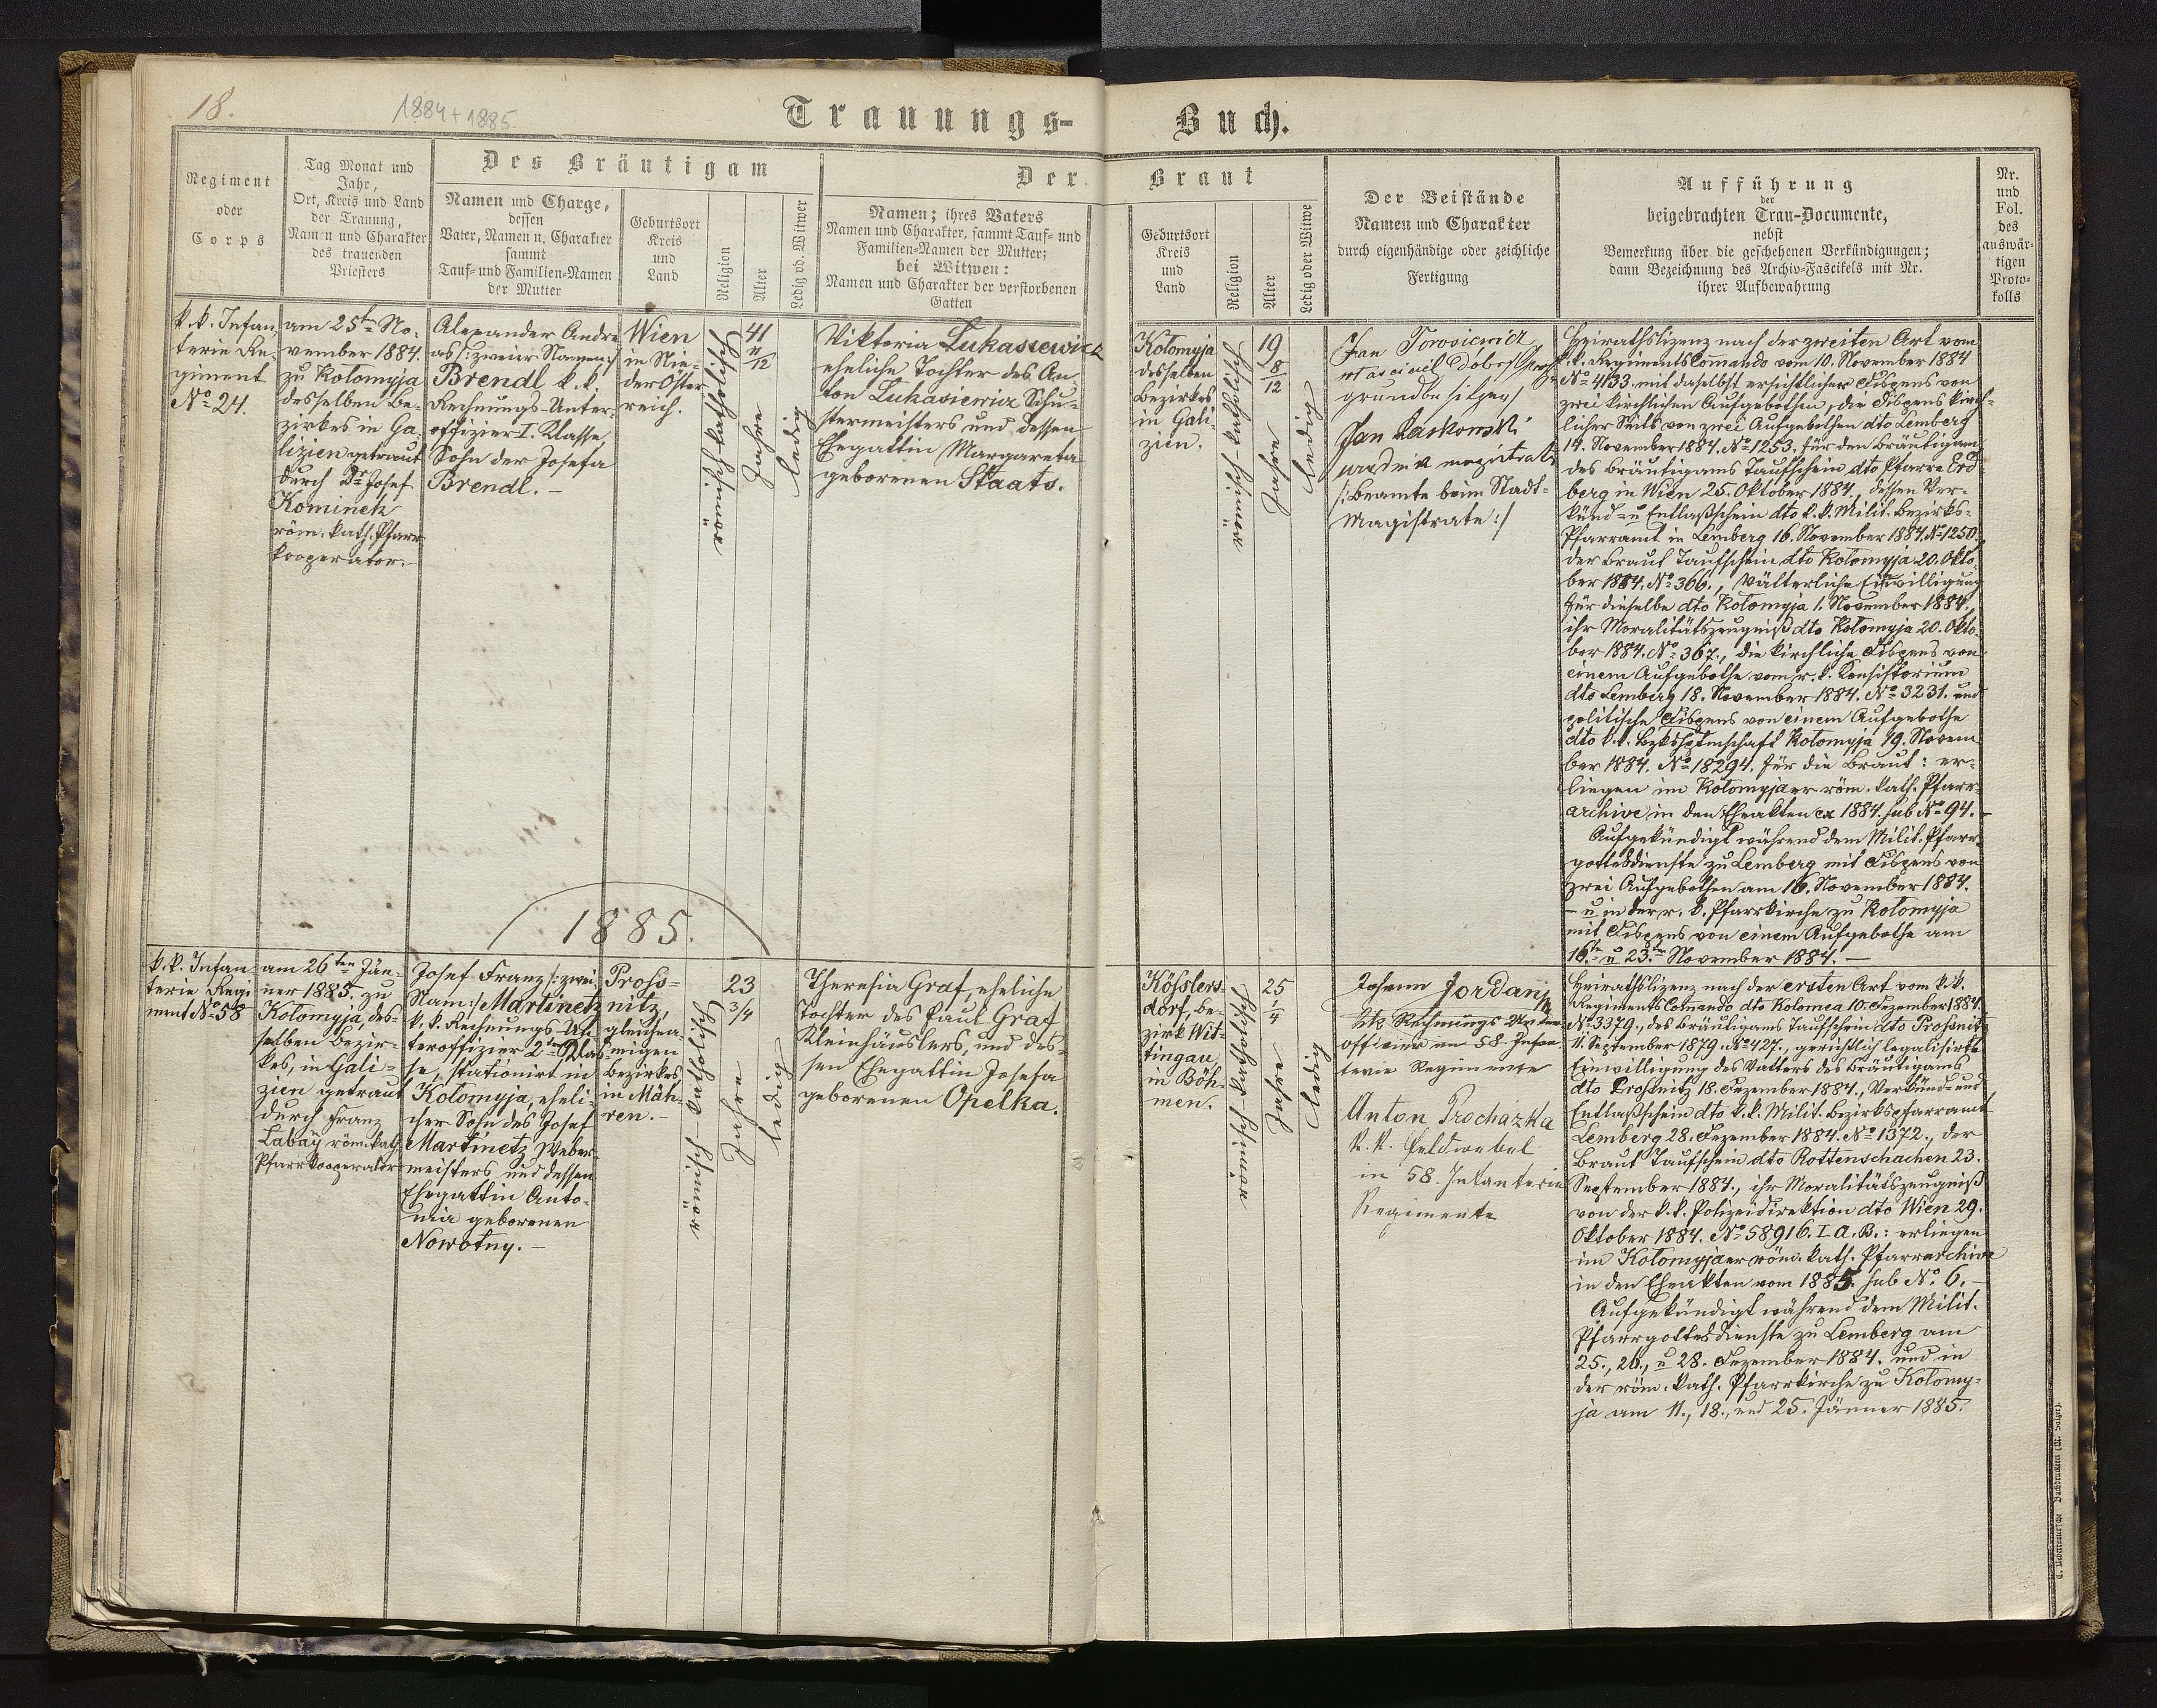 18.
1884 + 1885
Trauungs-Buch.
Regiment
oder
Corps
Tag Monat und
Jahr,
Ort, Kreis und Land
der Trauung,
Namen und Charakter
des trauenden
Priesters
Des Bräutigam
Namen und Charge,
dessen
Vater, Namen u. Charakter
sammt
Tauf- und Familien-Namen
der Mutter
Geburtsort
Kreis
und
Land
Religion
Alter
Ledig od. Witwer
Der Braut
Namen; ihres Vaters
Namen und Charakter, sammt Tauf- und
Familien-Namen der Mutter;
bei Witwen:
Namen und Charakter der verstorbenen
Gatten
Geburtsort
Kreis
und
Land
Religion
Alter
Ledig oder Witwe
Der Beistände
Namen und Charakter
durch eigenhändige oder zeichliche
Fertigung
Aufführung
der
beigebrachten Trau-Documente,
nebst
Bemerkung über die geschehenen Verkündigungen;
dann Bezeichnung des Archiv-Fascikels mit Nr.
ihrer Aufbewahrung
Nr.
und
Fol.
des
auswär-
tigen
Proto-
kolls
k. k. Infan
terie Re-
giment
No 24.
am 25ten No-
vember 1884.
zu Kołomyja
desselben Be-
zirkes in Ga-
lizien getraut
durch Dr Josef
Kominek
röm. kath. Pfarr
kooperator.-
Alexander Andre
as /: zweier Namen :/
Brendl k. k.
Rechnungs-Unter-
offizier I. Klasse,
Sohn der Josefa
Brendl. -
Wien
in Nie-
der Öster
reich.
katholisch-römisch
41
11/12
Jahre
ledig
Viktoria Łukasiewicz
eheliche Tochter des An-
ton Łukasiewicz Schu-
stermeisters und dessen
Ehegattin Margareta
geborenen Staats.
Kołomyja
desselben
Bezirkes
in Gali-
zien.
katholisch-römisch
19
8/12
Jahre
ledig
Jan Torosiewicz
właściciel dóbr
grundbesitzer/
Jan Laskowski
urzędnik magistratu
/: Beamte beim Stadt-
Magistrate :/
Heirathslizenz nach der zweiten Art vom
k. k. Regiments Commando vom 10. November 1884
No 4133. mit daselbst ersichtlicher Dispens von
zwei kirchlichen Aufgebothen, die Dispens kirch-
licher Seits von zwei Aufgebothen dto Lemberg
14. November 1884. No 1253. für den Bräutigam
des Bräutigams Taufschein dto Pfarre Erd
berg in Wien 25. Oktober 1884., dessen Ver-
künd- u Entlaßschein dto k. k. Milit. Bezirks-
Pfarramt in Lemberg 16. November 1884. No 1250.
der Braut Taufschein dto Kołomyja 20. Okto-
ber 1884. No 366., vätterliche Einwilligung
für dieselbe dto Kołomyja 1. November 1884.,
ihr Moralitätszeugniß dto Kołomyja 20. Okto-
ber 1884. No 367., die kirchliche Dispens von
einem Aufgebothe vom r. k. Konsistorium
dto Lemberg 18. November 1884. No 3231. und
politische Dispens von einem Aufgebothe
dto k. k. Bzkshptmschaft Kołomyja 19. Novem
ber 1884. No 18294. für die Braut: er-
liegen im Kołomyjaer röm. kath. Pfarr-
archive in den Eheakten ex 1884. sub No 94. -
Aufgekündigt während dem Milit. Pfarr-
gottesdienste zu Lemberg mit Dispens von
zwei Aufgebothen am 16. November 1884.
- u in der r. k. Pfarrkirche zu Kołomyja
mit Dispens von einem Aufgebothe am
16ten u 23ten November 1884. -
1885.
k. k. Infan-
terie Regi
ment No 58
am 26ten Jän-
ner 1885. zu
Kołomyja, des-
selben Bezir-
kes, in Gali-
zien getraut
durch Franz
Łabay röm. kath.
Pfarrkooperator
Josef Franz /: zwei
Nam :/ Martinetz
k. k. Rechnungs-Un
teroffizier 2ter Klas-
se, stationirt in
Kołomyja, eheli-
cher Sohn des Josef
Martinetz Weber-
meisters und dessen
Ehegattin Anto-
nia geborenen
Nowotny. -
Proß-
nitz,
gleichna-
migen
Bezirkes
in Mäh-
ren. -
katholisch-römisch
23
3/4
Jahre
ledig
Theresia Graf, eheliche
Tochter des Paul Graf
Kleinhäuslers, und des-
sen Ehegattin Josefa
geborenen Opelka.
Kößlers-
dorf, Be-
zirk Wit-
tingau
in Böh-
men.
katholisch-römisch
25
1/4
Jahre
ledig
Johann Jordan
k k Rechnungs Unter
offizier im 58. Infan-
terie Regimente
Anton Procházka
k. k. Feldwebel
in 58. Infanterie
Regimente
Heirathslizenz nach der ersten Art vom k. k.
Regiments Comando dto Kolomea 10. Dezember 1884
No 3379., des Bräutigams Taufschein dto Proßnitz
11. September 1879. No 427., gerichtlich legalisirte
Einwilligung des Vatters des Bräutigams
dto Proßnitz 18. Dezember 1884., Verkünd und
Entlaßschein dto k. k. Milit. Bezirkspfarramt
Lemberg 28. Dezember 1884. No 1372., der
Braut Taufschein dto Rottenschachen 23.
September 1884., ihr Moralitätszeugniß
von der k. k. Polizeidirektion dto Wien 29.
Oktober 1884. No 58916. I. A. B.: erliegen
im Kołomyjaer röm. kath. Pfarrarchive
in den Eheakten vom 1885. sub No 6. -
Aufgekündigt während dem Milit.
Pfarrgottesdienste zu Lemberg am
25., 26., u 28. Dezember 1884. und in
der röm. kath. Pfarrkirche zu Kołomy-
ja am 11., 18., und 25. Jänner 1885.